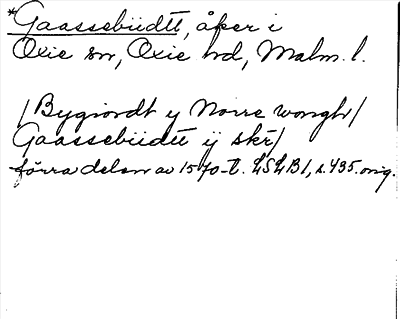 *Gaassebiidtt, åker i
Oxie sn, Oxie hd, Malm. l.
/Bygiordt y Nörre wongh/
Gaassebiidtt ij skr/
förra delen av 1570-t. LSLB1, s. 435. orig.